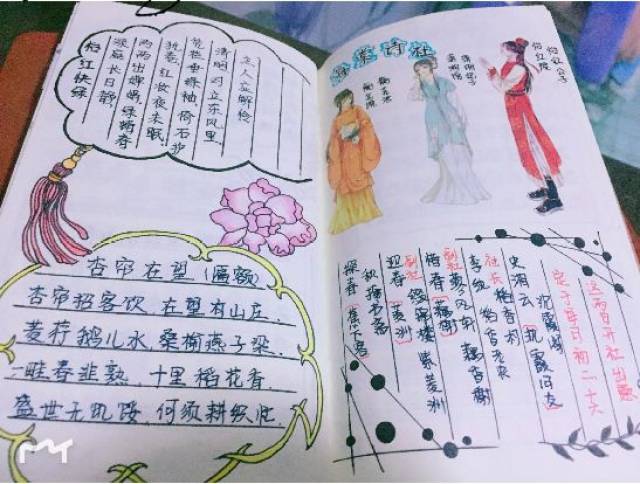 怡红快绿
深庭长日静
两两出婵娟.绿蜡春
犹卷.红妆夜未眠.
凭栏垂绛袖.倚石护
对立东风里.
主人应解怜
杏帘在望(匾额)
杏帘招客饮.在望有山庄.
菱荇鹅儿水.桑榆燕子梁.
一畦春韭熟.十里稻花香.
盛世无饥馁.何须耕织忙.
海棠诗社
怡红公子
怡红院
潇湘妃子
潇湘馆
蘅芜君
蘅芜苑
开社出题
定于每月初二十六
枕霞阁 枕霞旧友
史湘云
社长稻香村 稻香老农
李纨
副社暖香坞 藕香榭
惜春(藕榭)
副社缀锦楼 紫菱洲
迎春(菱洲)
秋掩书斋
探春(蕉下客)